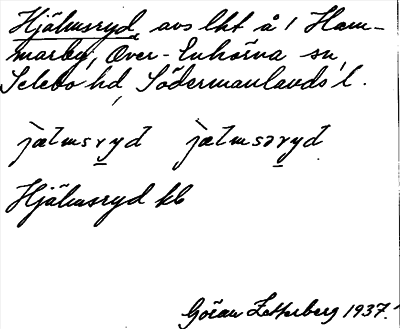 Hjälmsryd, avs lht å 1 Ham-
marby, Över-Enhörna sn,
Selebo hd, Södermanlands l.
jælmsryd jælmsəryd
Hjälmsryd kb
Göran Zetterberg 1937.